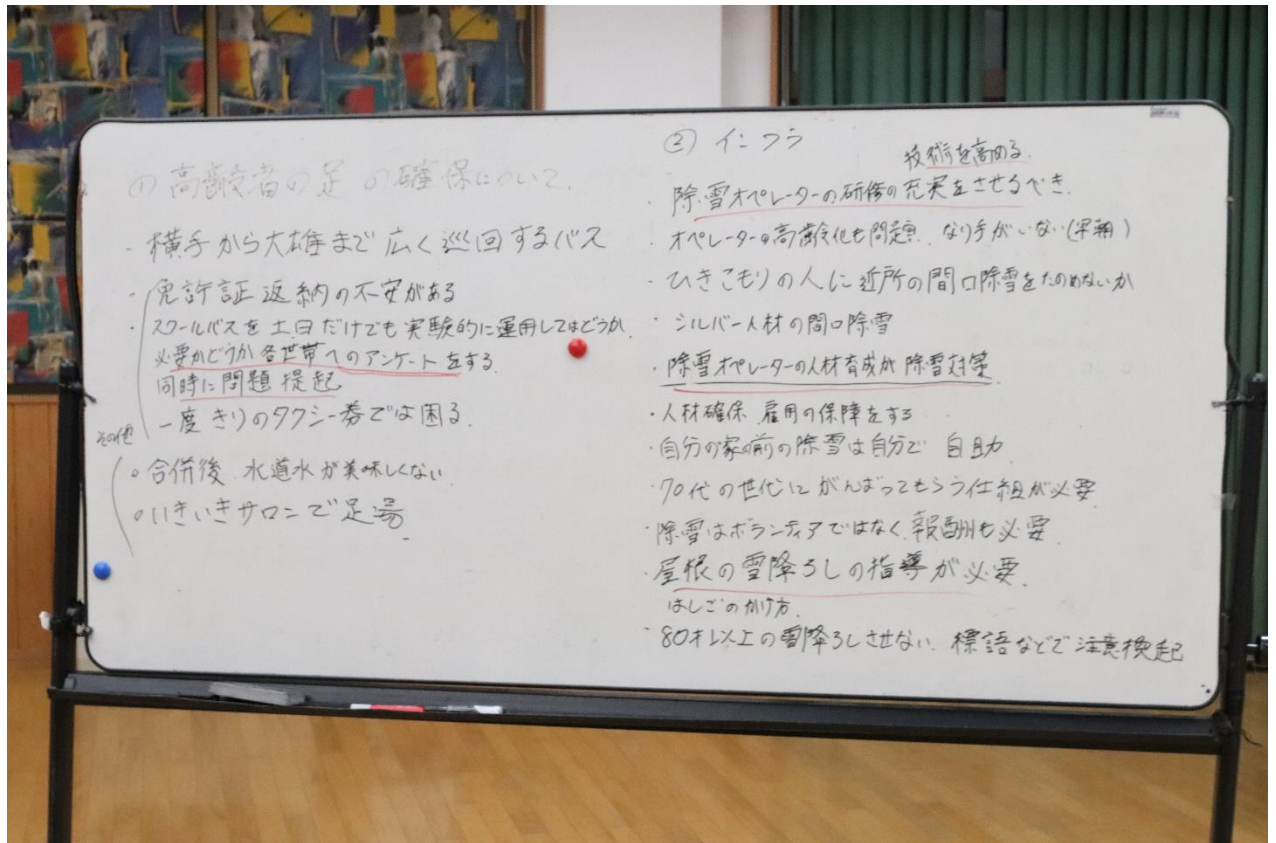 ① 高齢者の足の確保について
・横手から大雄まで広く巡回するバス
・免許証返納の不安がある
・スクールバスを土日だけでも実験的に運用してはどうか
必要かどうか各世帯へのアンケートをする
同時に問題提起
一度きりのタクシー券では困る.
その他
○合併後 水道水が美味しくない
○いきいきサロンで足湯
② インフラ
技術を高める.
・除雪オペレーターの研修の充実をさせるべき.
・オペレーターの高齢化も問題 なり手がいない(早朝)
・ひきこもりの人に近所の間口除雪をたのめないか
・シルバー人材の間口除雪
・除雪オペレーターの人材育成が除雪対策
・人材確保 雇用の保障をする
・自分の家の前の除雪は自分で 自助
・70代の世代にがんばってもらう仕組が必要
・除雪はボランティアではなく、報酬も必要
・屋根の雪降ろしの指導が必要.
はしごのかけ方.
・80才以上の雪降ろしさせない. 標語などで注意換起